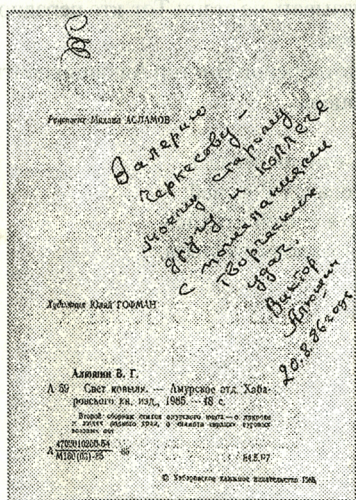 Рецензент Михаил АСЛАМОВ
Валерию
Черкесову –
моему старому
другу и коллеге
с пожеланиями
творческих
удач.
Виктор
Алюшин
20.8.86 года
Художник Юлий ГОФМАН
Алюшин В. Г.
А 59 Свет ковыля. — Амурское отд. Хаба-
ровского кн. изд., 1985. — 48 с.
Второй сборник стихов амурского поэта — о природе
и людях родного края, о памяти сердца суровых
военных лет.
А 4703010200-54
М160(03)-85 85
84.5.Р7
© Хабаровское книжное издательство 1985